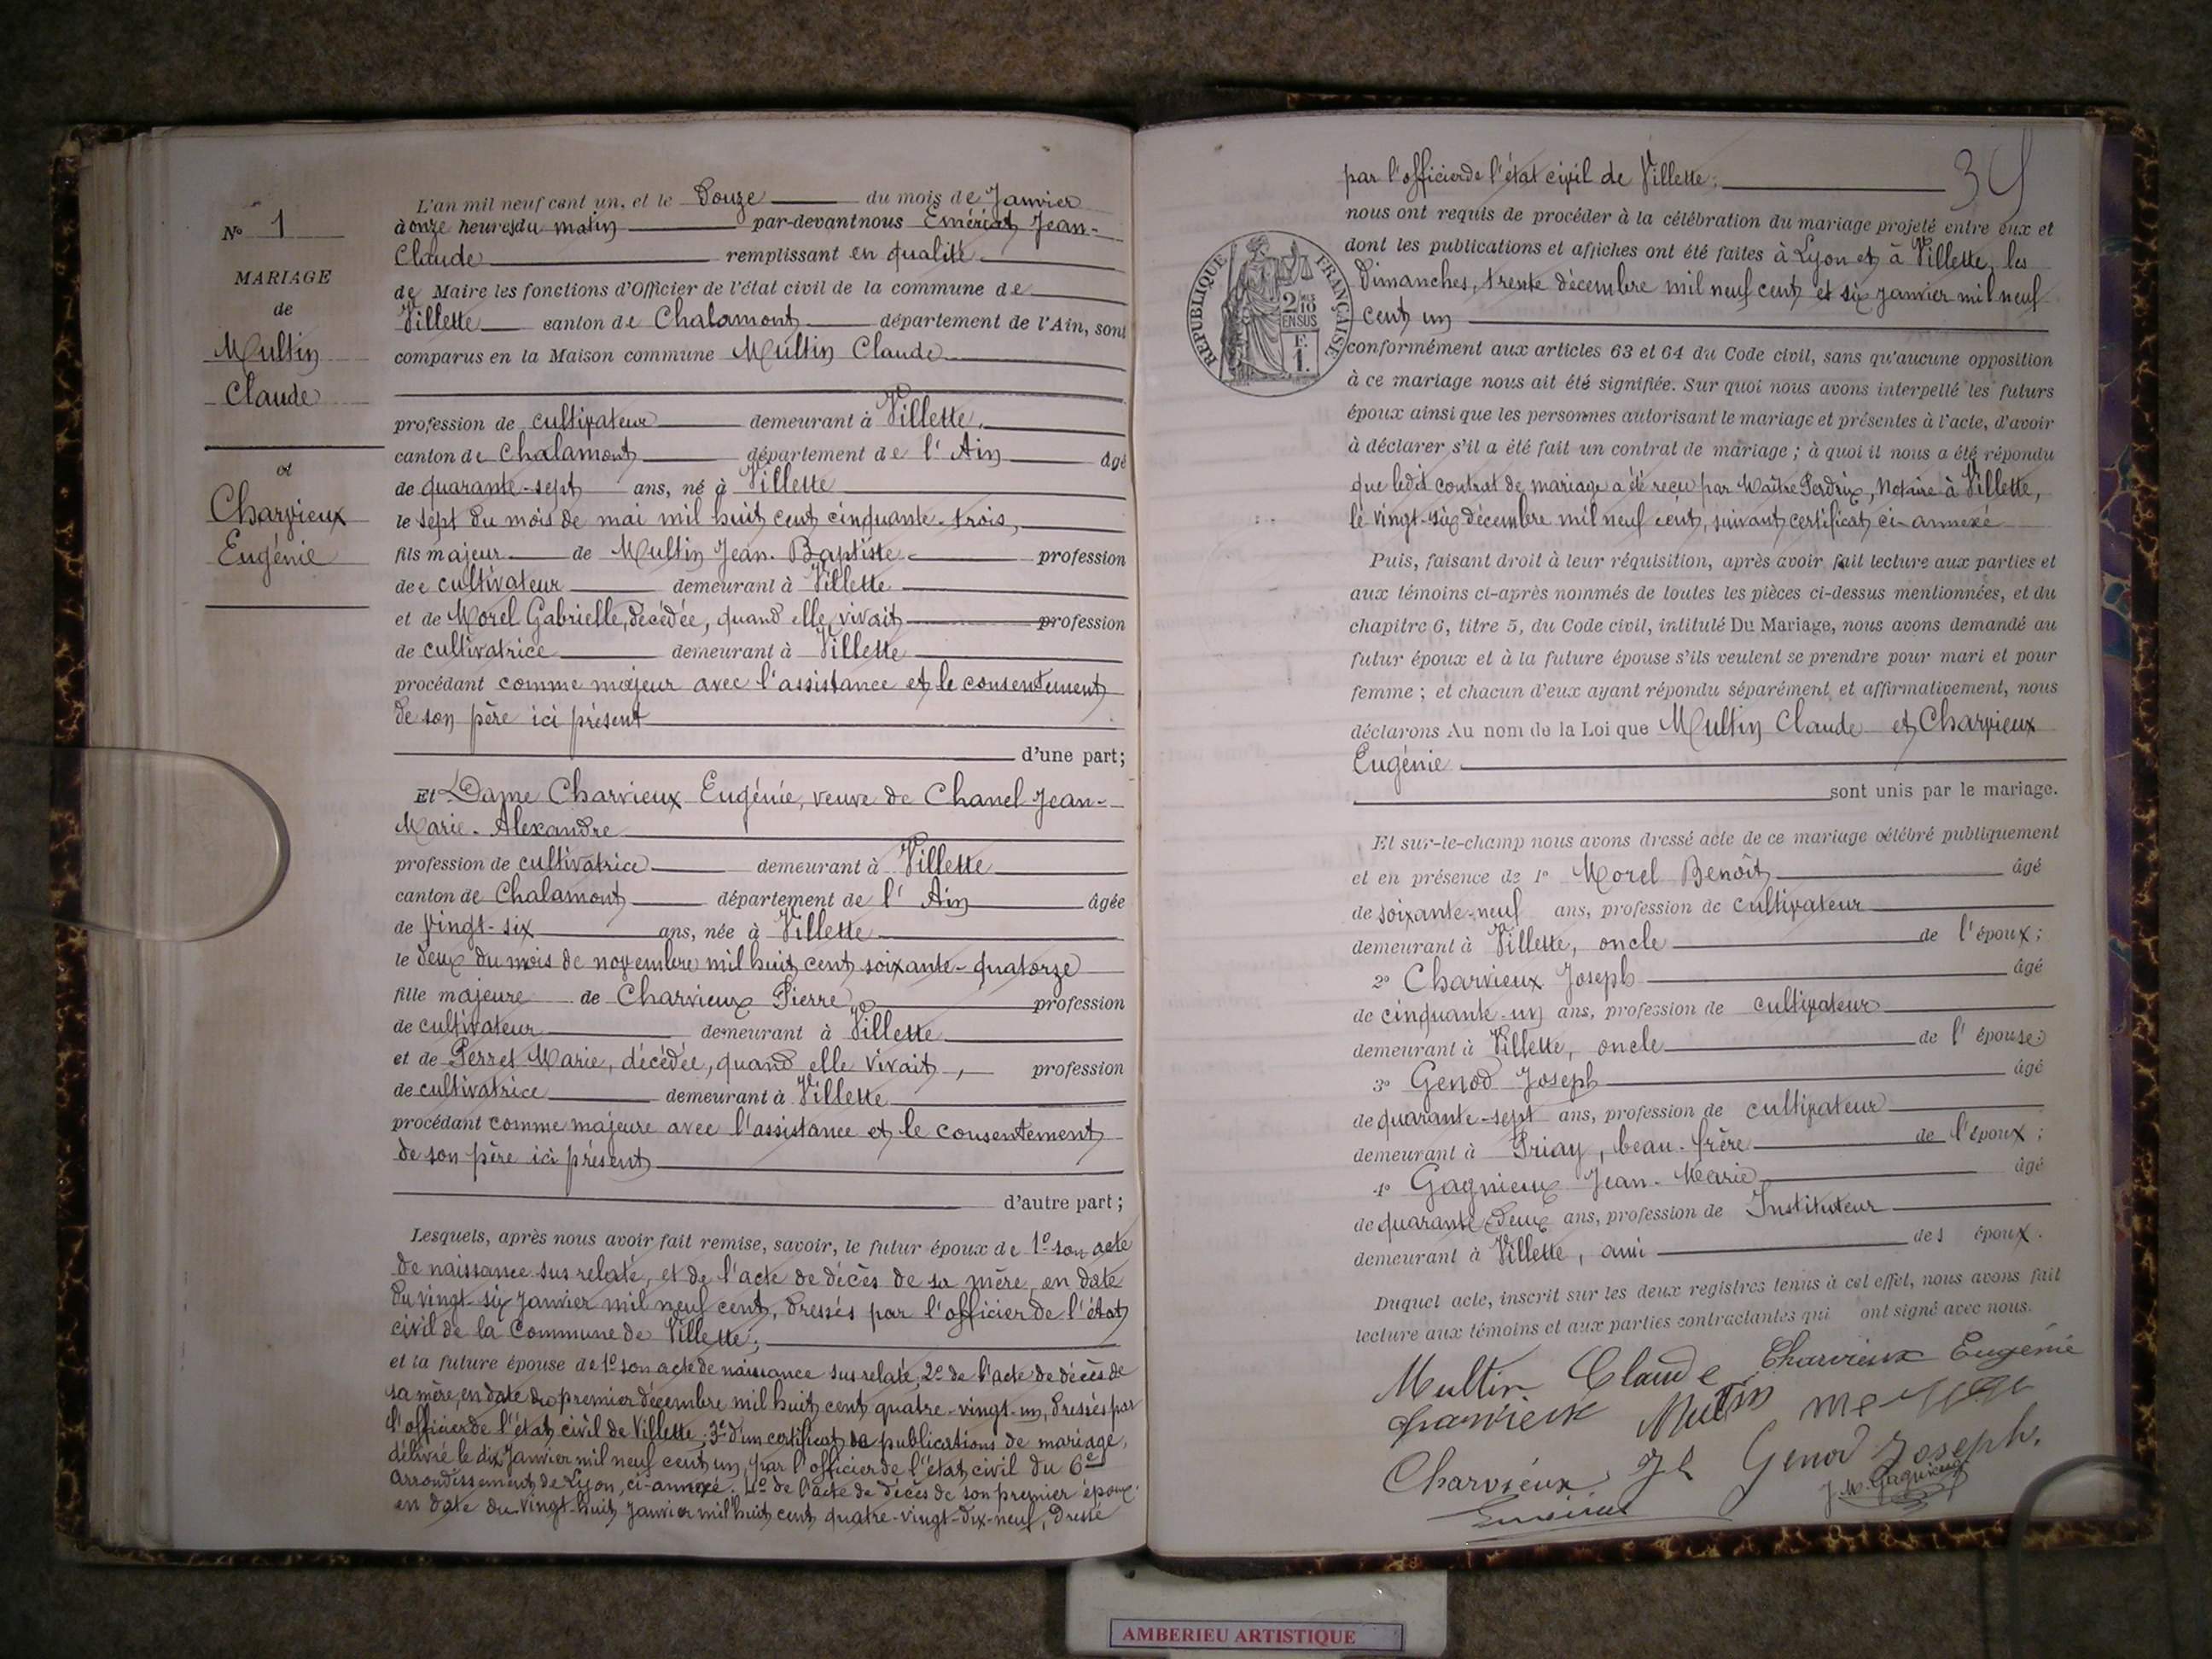 N° 1
MARIAGE
de
Multin
Claude
et
Charvieux
Eugénie
L'an mil neuf cent un, et le Douze du mois de Janvier
à onze heures du matin par-devant nous Emériat Jean-
Claude remplissant en qualité
de Maire les fonctions d'Officier de l'état civil de la commune de
Villette canton de Chalamont département de l'Ain, sont
comparus en la Maison commune Multin Claude
profession de cultivateur demeurant à Villette,
canton de Chalamont département de l'Ain âgé
de quarante-sept ans, né à Villette
le sept du mois de mai mil huit cent cinquante-trois,
fils majeur de Multin Jean-Baptiste profession
de cultivateur demeurant à Villette
et de Morel Gabrielle, décédée, quand elle vivait profession
de cultivatrice demeurant à Villette
procédant comme majeur avec l'assistance et le consentement
de son père ici présent
d'une part;
Et Dame Charvieux Eugénie, veuve de Chanel Jean-
Marie-Alexandre
profession de cultivatrice demeurant à Villette
canton de Chalamont département de l'Ain âgée
de vingt-six ans, née à Villette
le deux du mois de novembre mil huit cent soixante-quatorze
fille majeure de Charvieux Pierre profession
de cultivateur demeurant à Villette
et de Perret Marie, décédée, quand elle vivait, profession
de cultivatrice demeurant à Villette
procédant comme majeure avec l'assistance et le consentement
de son père ici présent
d'autre part;
Lesquels, après nous avoir fait remise, savoir, le futur époux de 1° son acte
de naissance sus relaté, et de l'acte de décès de sa mère, en date
du vingt-six Janvier mil neuf cent, dressés par l'officier de l'état
civil de la Commune de Villette;
et la future épouse de 1° son acte de naissance sus relaté, 2° de l'acte de décès de
sa mère, en date du premier décembre mil huit cent quatre-vingt-un, dressés par
l'officier de l'état civil de Villette; 3° d'un certificat de publications de mariage,
délivré le dix Janvier mil neuf cent un, par l'officier de l'état civil du 6e
Arrondissement de Lyon, ci-annexé. 4° de l'acte de décès de son premier époux
en date du vingt-huit Janvier mil huit cent quatre-vingt-dix-neuf, dressé
par l'officier de l'état civil de Villette;
nous ont requis de procéder à la célébration du mariage projeté entre eux et
dont les publications et affiches ont été faites à Lyon et à Villette, les
Dimanches, trente décembre mil neuf cent et six Janvier mil neuf
cent un
REPUBLIQUE FRANÇAISE
2/10
EN SUS
F.
1.
conformément aux articles 63 et 64 du Code civil, sans qu'aucune opposition
à ce mariage nous ait été signifiée. Sur quoi nous avons interpellé les futurs
époux ainsi que les personnes autorisant le mariage et présentes à l'acte, d'avoir
à déclarer s'il a été fait un contrat de mariage; à quoi il nous a été répondu
que ledit contrat de mariage a été reçu par Maître Perdrix, Notaire à Villette,
le vingt-six décembre mil neuf cent, suivant certificat ci-annexé
Puis, faisant droit à leur réquisition, après avoir fait lecture aux parties et
aux témoins ci-après nommés de toutes les pièces ci-dessus mentionnées, et du
chapitre 6, titre 5, du Code civil, intitulé Du Mariage, nous avons demandé au
futur époux et à la future épouse s'ils veulent se prendre pour mari et pour
femme; et chacun d'eux ayant répondu séparément et affirmativement, nous
déclarons Au nom de la Loi que Multin Claude et Charvieux
Eugénie
sont unis par le mariage.
Et sur-le-champ nous avons dressé acte de ce mariage célébré publiquement
et en présence de 1° Morel Benoît âgé
de soixante-neuf ans, profession de cultivateur
demeurant à Villette, oncle de l'époux;
2° Charvieux Joseph âgé
de cinquante-un ans, profession de cultivateur
demeurant à Villette, oncle de l'épouse;
3° Genod Joseph âgé
de quarante-sept ans, profession de cultivateur
demeurant à Priay, beau-frère de l'époux;
4° Gagnieux Jean-Marie âgé
de quarante-deux ans, profession de Instituteur
demeurant à Villette, ami des époux.
Duquel acte, inscrit sur les deux registres tenus à cet effet, nous avons fait
lecture aux témoins et aux parties contractantes qui ont signé avec nous.
Multin Claude Charvieux Eugénie
charvieux Multin
Charvieux Genod Joseph.
J. M. Gagnieux
AMBERIEU ARTISTIQUE